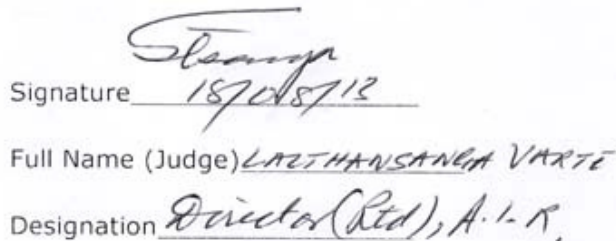 Signature 18/08/13
Full Name (Judge) LALTHANSANGA VARTE
Designation Director (Rtd), A.I.R.